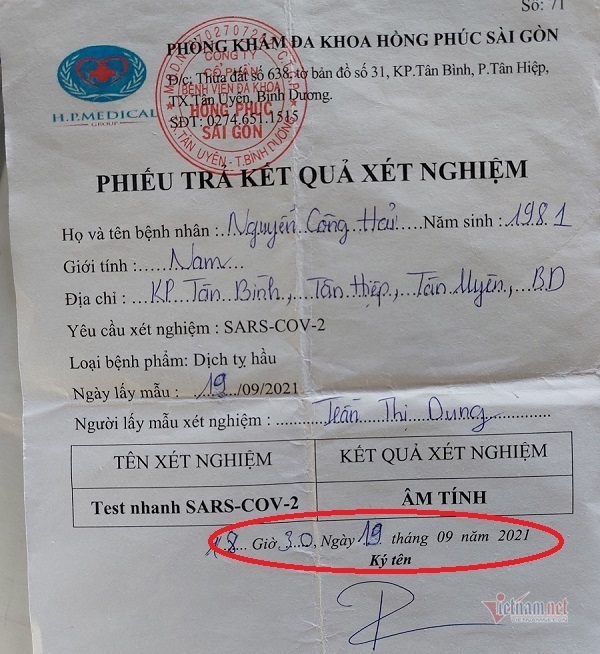 Số: 71
PHÒNG KHÁM ĐA KHOA HỒNG PHÚC SÀI GÒN
Đ/c: Thửa đất số 638, tờ bản đồ số 31, KP.Tân Bình, P.Tân Hiệp,
TX.Tân Uyên, Bình Dương.
SĐT: 0274.651.1515
H.P.MEDICAL
GROUP
CÔNG TY
CỔ PHẦN
BỆNH VIỆN ĐA KHOA
HỒNG PHÚC
SÀI GÒN
TX.TÂN UYÊN - T.BÌNH DƯƠNG
PHIẾU TRẢ KẾT QUẢ XÉT NGHIỆM
Họ và tên bệnh nhân : Nguyễn Công Hải Năm sinh : 1981
Giới tính : Nam
Địa chỉ : KP. Tân Bình, Tân Hiệp, Tân Uyên, BD
Yêu cầu xét nghiệm : SARS-COV-2
Loại bệnh phẩm: Dịch tỵ hầu
Ngày lấy mẫu : 19/09/2021
Người lấy mẫu xét nghiệm : Trần Thị Dung
TÊN XÉT NGHIỆM KẾT QUẢ XÉT NGHIỆM
Test nhanh SARS-COV-2 ÂM TÍNH
18 Giờ 30, Ngày 19 tháng 09 năm 2021
Ký tên
Vietnamnet